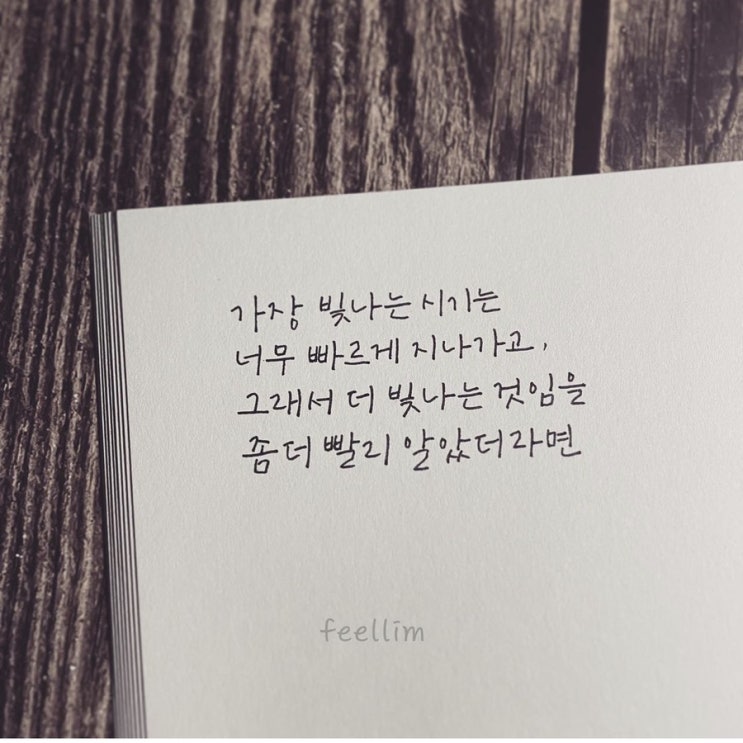 가장 빛나는 시기는
너무 빠르게 지나가고,
그래서 더 빛나는 것임을
좀 더 빨리 알았더라면
feellim